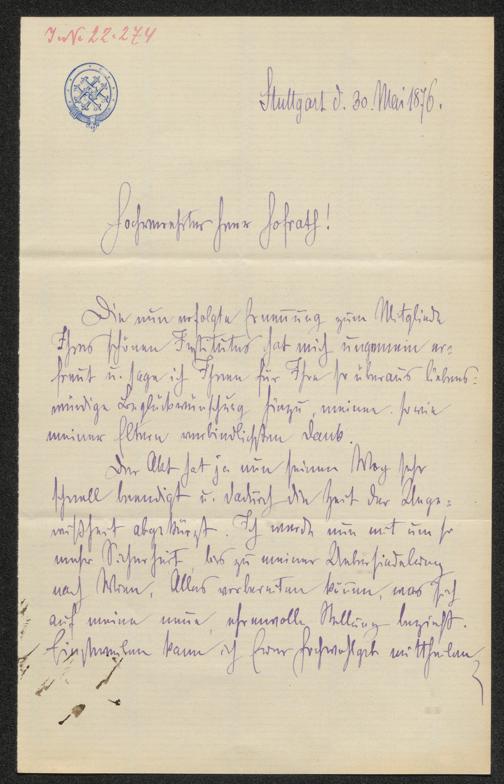 I.N. 22.274
Stuttgart d. 30. Mai 1876.
Hochverehrter Herr Hofrath!
Die nun erfolgte Ernennung zum Mitgliede
Ihres schönen Institutes hat mich ungemein er-
freut u. sage ich Ihnen für Ihre so überaus liebens-
würdige Beglückwünschung hiezu, meinen sowie
meiner Eltern verbindlichsten Dank.
Der Akt hat ja nun seinen Weg sehr
schnell beendigt u. dadurch die Zeit der Unge-
wißheit abgekürzt. Ich werde nun mit um so
mehr Sicherheit, bis zu meiner Uebersiedelung
nach Wien, Alles vorbereiten können, was sich
auf meine neue, ehrenvolle Stellung bezieht.
Einstweilen kann ich Euer Hochwohlgeb. mittheilen,